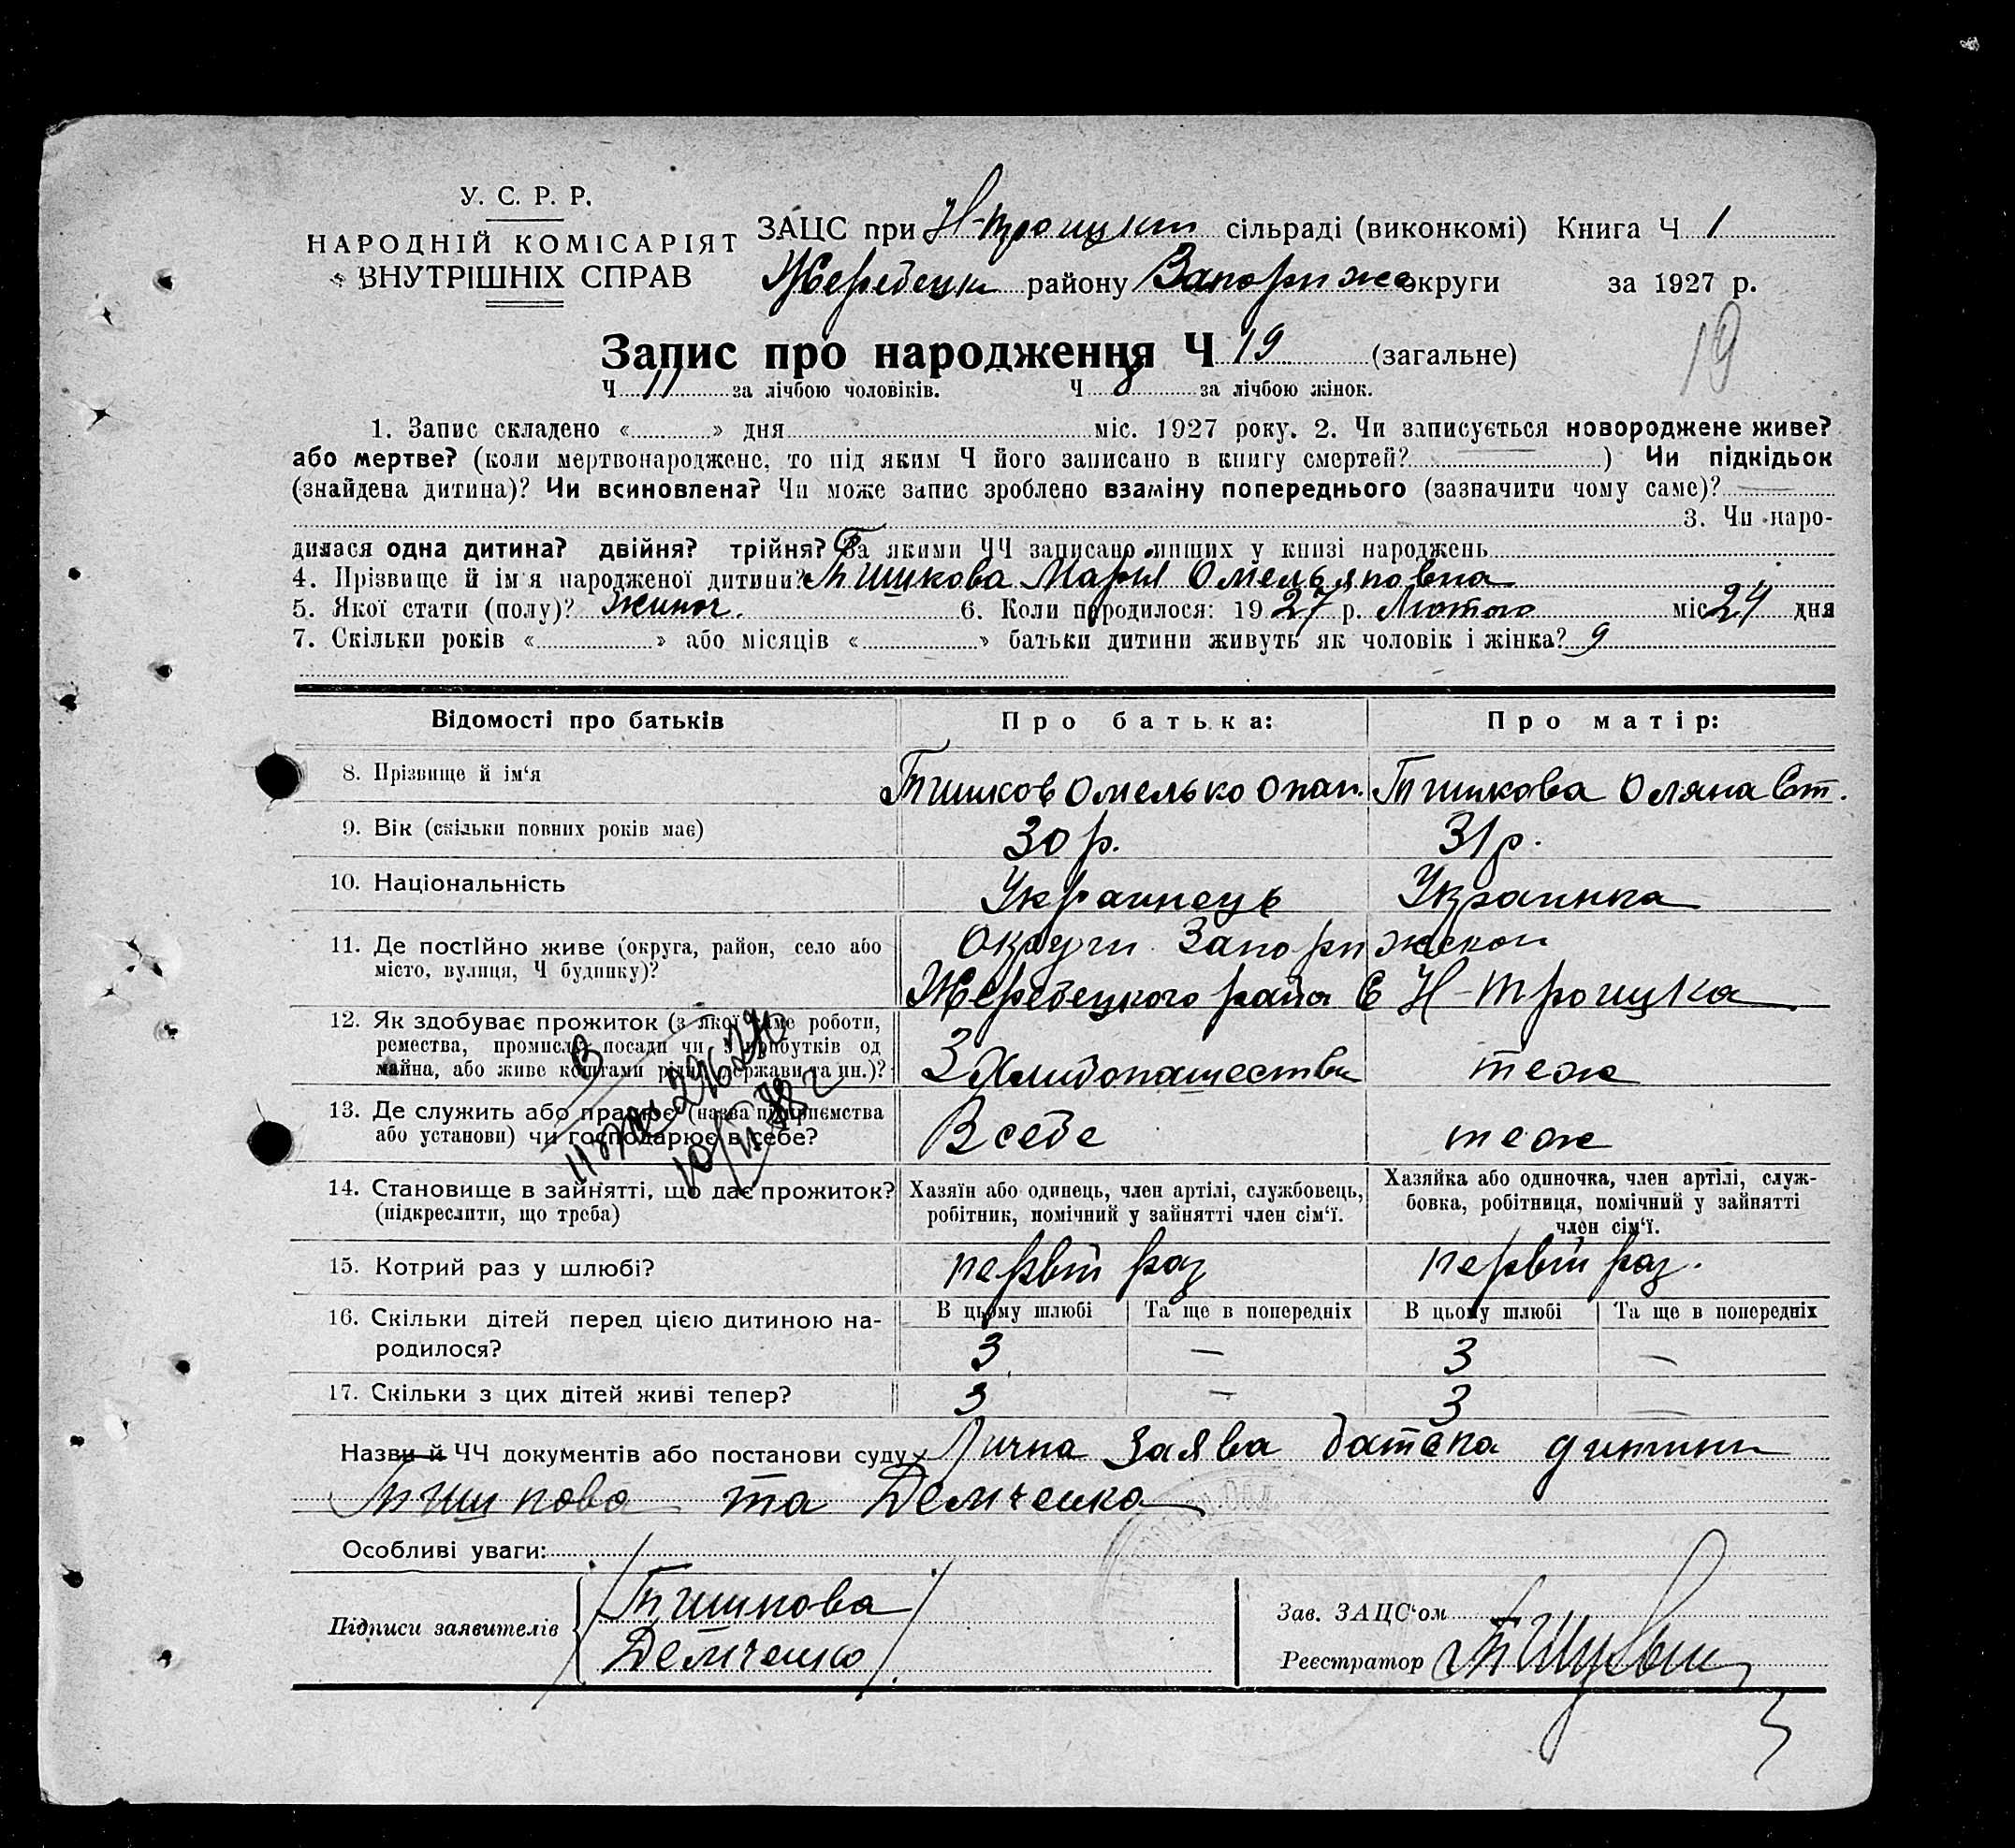 У. С. Р. Р.
НАРОДНІЙ КОМІСАРІЯТ
ВНУТРІШНІХ СПРАВ
ЗАЦС при Н-Троицкий сільраді (виконкомі) Книга Ч 1
Жеребецк району Запорижс округи за 1927 р.
19
Запис про народження Ч 19 (загальне)
Ч 11 за лічбою чоловіків. Ч 8 за лічбою жінок.
1. Запис складено « » дня міс. 1927 року. 2. Чи записується новороджене живе?
або мертве? (коли мертвонароджене, то під яким Ч його записано в книгу смертей? ) Чи підкідьок
(знайдена дитина)? Чи всиновлена? Чи може запис зроблено взаміну попереднього (зазначити чому саме)?
3. Чи наро-
дилася одна дитина? двійня? трійня? За якими ЧЧ записано инших у книзі народжень
4. Прізвище й ім'я народженої дитини? Тишкова Мария Омельяновна
5. Якої стати (полу)? жиноч. 6. Коли народилося: 1927 р. Лютого міс 24 дня
7. Скільки років « » або місяців « » батьки дитини живуть як чоловік і жінка? 9
Відомості про батьків Про батька: Про матір:
8. Прізвище й ім'я Тишков Омелько Опан. Тишкова Оляна Ст.
9. Вік (скільки повних років має) 30 р. 31 р.
10. Національність Украинець Украинка
11. Де постійно живе (округа, район, село або Округи Запорижской
місто, вулиця, Ч будинку)? Жеребецкого райа С Н-Троицка
12. Як здобуває прожиток (з якої саме роботи,
ремества, промисла, посади чи з прибутків од
майна, або живе коштами рідні, держави та ин.)? З Хлибопашества теж
13. Де служить або працює (назва підприємства
або установи) чи господарює в себе? В себе теж
14. Становище в зайнятті, що дає прожиток? Хазяїн або одинець, член артілі, службовець, Хазяйка або одиночка, член артілі, служ-
(підкреслити, що треба) робітник, помічний у зайнятті член сім'ї. бовка, робітниця, помічний у зайнятті
член сім'ї.
15. Котрий раз у шлюбі? первій раз первій раз.
16. Скільки дітей перед цією дитиною на- В цьому шлюбі Та ще в попередніх В цьому шлюбі Та ще в попередніх
родилося? 3 — 3 —
17. Скільки з цих дітей живі тепер? 3 — 3 —
Назви й ЧЧ документів або постанови суду Лична Заява батька дитини
Тишкова та Демченка
Особливі уваги:
Підписи заявителів Тишкова
Демченко
Зав. ЗАЦС'ом
Реєстратор